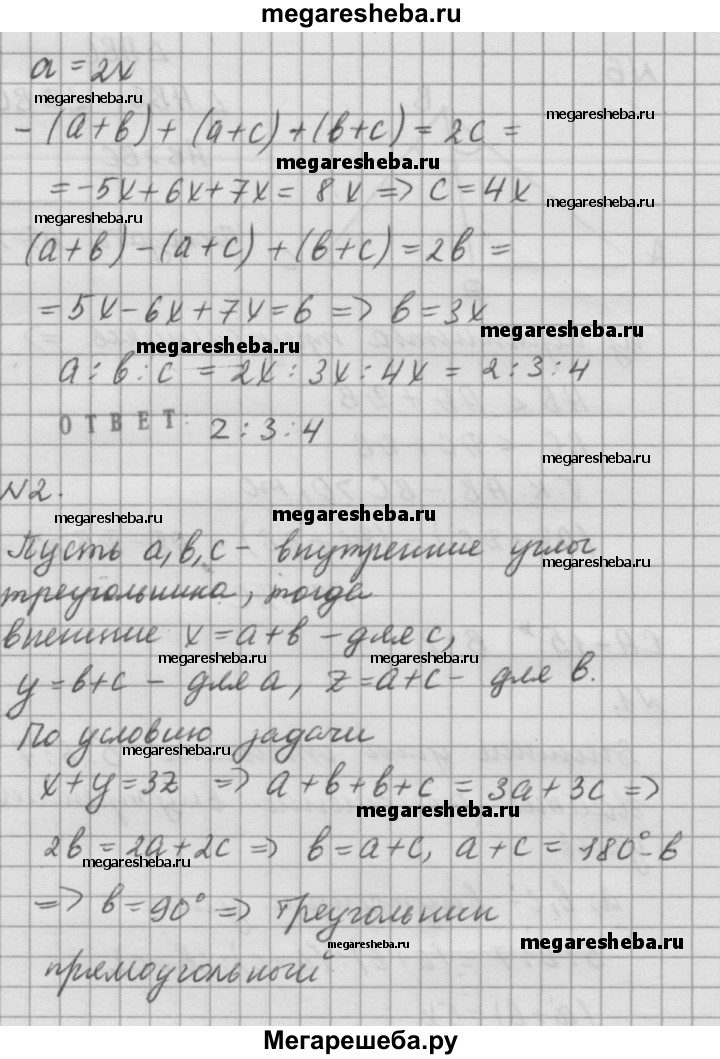 megaresheba.ru
a = 2x
megaresheba.ru
megaresheba.ru
- (a+в) + (a+c) + (в+c) = 2c =
megaresheba.ru
= -5x+6x+7x = 8x => c = 4x
megaresheba.ru
megaresheba.ru
(a+в) - (a+c) + (в+c) = 2в =
= 5x - 6x + 7x = 6 => в = 3x
megaresheba.ru
megaresheba.ru
a : в : c = 2x : 3x : 4x = 2 : 3 : 4
ОТВЕТ: 2 : 3 : 4
megaresheba.ru
N2.
megaresheba.ru
megaresheba.ru
megaresheba.ru
Пусть a, в, c - внутренние углы
треугольника, тогда
внешние x = a+в - для c,
megaresheba.ru
megaresheba.ru
y = в+c - для a, z = a+c - для в.
По условию задачи
megaresheba.ru
x+y = 3z => a+в+в+c = 3a+3c =>
megaresheba.ru
2в = 2a+2c => в = a+c, a+c = 180°-в
megaresheba.ru
=> в = 90° => треугольник
megaresheba.ru
megaresheba.ru
прямоугольный
Мегарешеба.ру